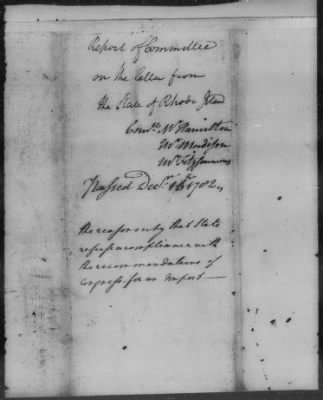 Report of Committee
on the Letter from
the State of Rhode Island
Comee Mr Hamilton
Mr Madison
Mr Fitzsimmons
Passed Decr. 16 1782
the reasons why that State
refuse a compliance with
the recommendations of
Congress for an impost